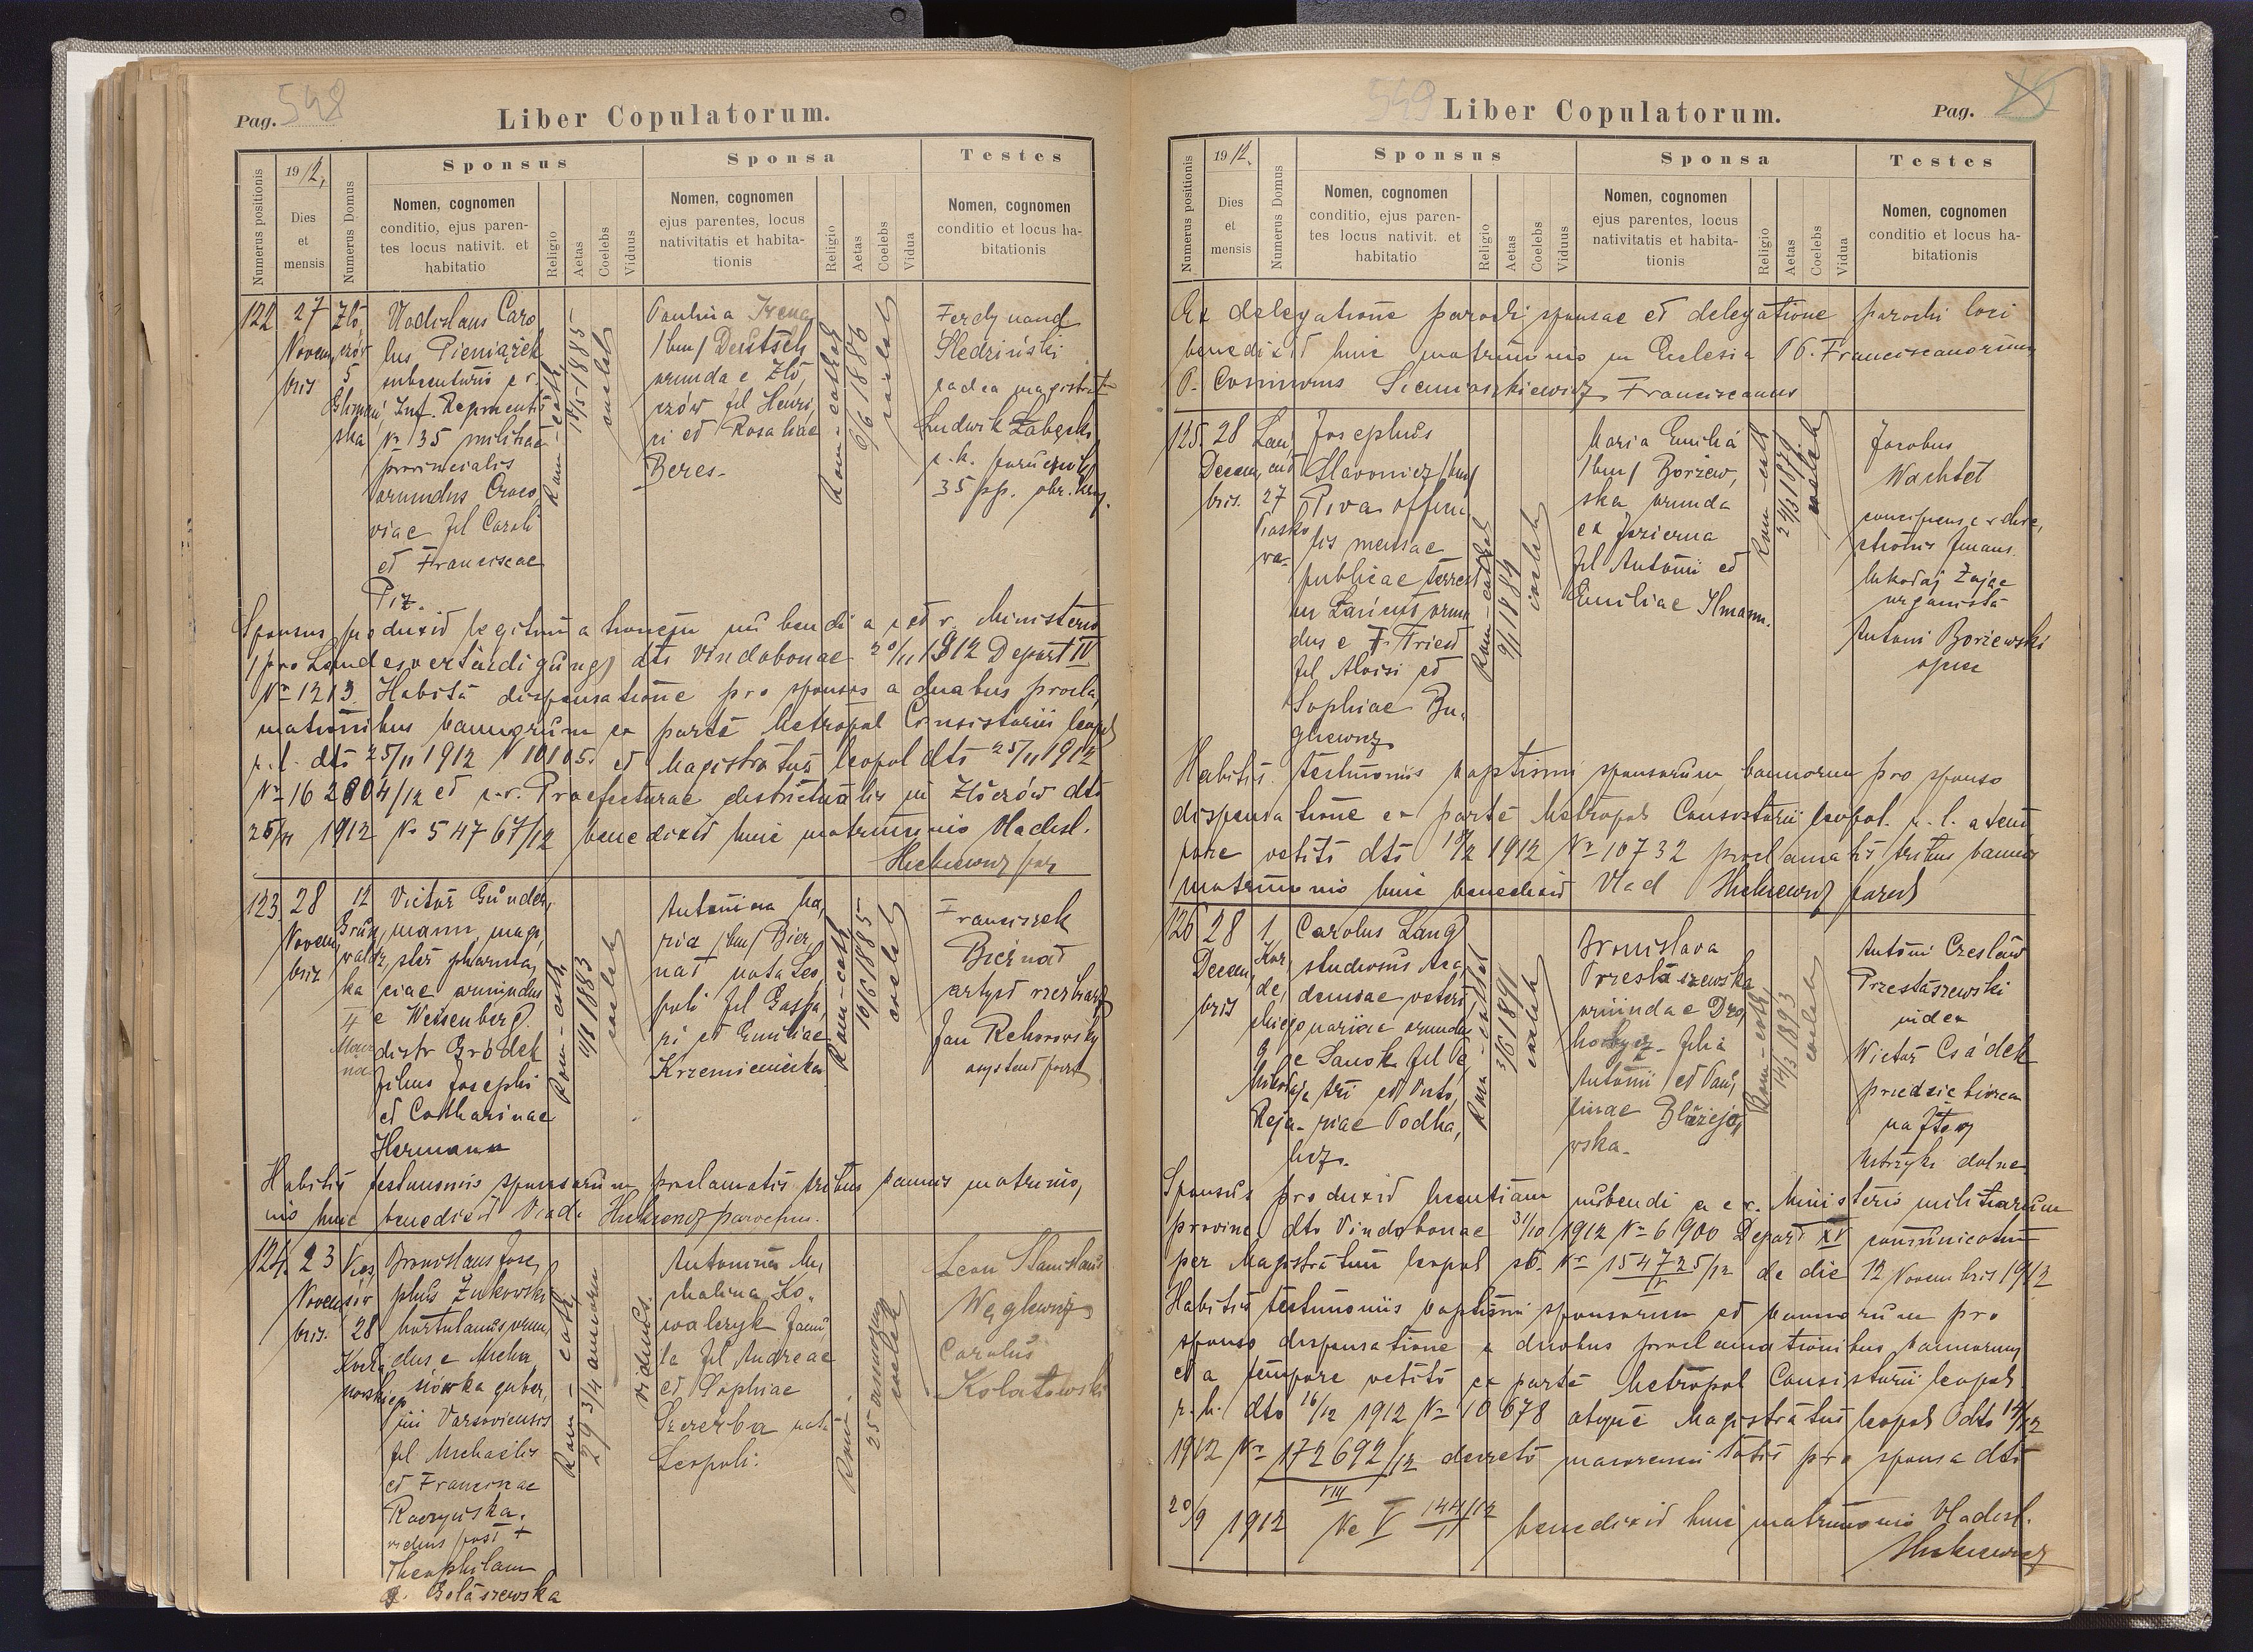 Pag. 548
Liber Copulatorum.
Numerus positionis
1912,
Dies
et
mensis
Numerus Domus
Sponsus
Nomen, cognomen
conditio, ejus paren-
tes locus nativit. et
habitatio
Religio
Aetas
Coelebs
Viduus
Sponsa
Nomen, cognomen
ejus parentes, locus
nativitatis et habita-
tionis
Religio
Aetas
Coelebs
Vidua
Testes
Nomen, cognomen
conditio et locus ha-
bitationis
122
27
Novem
bris
Zło
czów
5
Vladislaus Caro
lus Pieniążek
Inf. Regimentis
No 35 militiae
provincialis
oriundus Craco
viae fil Caroli
et Franciscae
Piz.
Rom-cath
15/5 1885
coelebs
Paulina Irena
/bin/ Deutsch
oriunda e Zło
czów fil Henri
ci et Rosaliae
Beres-
Rom-cathol
6/6 1886
coelebs
Ferdynand
Śledziński
radca magistrat
Ludwik Łabęcki
c.k. porucznik
35 pp. obr. kraj.
Sponsus produxit nubendi a Ministerio
/pro Landesverteidigung/ dto Vindobonae 20/11 1912 Depart IV
No 1213 Habita dispensatione pro sponsis a duabus procla
mationibus bannorum ex parte Metropol Consistorii leopol
r.l. dto 25/11 1912 N 10105 et Magistratus leopol dto 25/11 1912
No 162804/12 et c.r. Praefecturae districtualis in Złoczów dto
25/11 1912 No 54767/12 benedixit huic matrimonio Vladisl.
123
28
Novem
bris
12
Grün
waldz
ka
4
Victor Günder
mann magi
ster pharma
ciae oriundus
e Weissenberg
distr Gródek
filius Josephi
et Catharinae
Hermann
Rom-cath
1883
coelebs
Antonina Ma
ria /bin/ Bier
nat nata Leo
poli fil Gaspa
ri et Emiliae
Krzemienicka
Rom-cath
10/6 1885
coelebs
Franciszek
Biernat
artyst rzeźbiarz
Jan Rehorovský
Habitis testimoniis sponsorum proclamatis tribus bannis matrimo
nio huic benedixit Vlad. parochus.
124.
23
Novem
bris.
28
Bronislaus Jose
phus Żukowski
hortulanus oriun
dus e Micha
łówka guber
nii Varsoviensis
fil Michaelis
et Franciscae
Raczyńska.
vidus post +
Theophilam
Gołaszewska
Rom-cath
29 3/4 annorum
viduus.
Antonina Mi
chalina Ko
walczyk famu
la fil Andreae
et Sophiae
Szczerba nata
Leopoli.
Rom-
25 annorum
coelebs
Leon Stanislaus
Carolus
Pag.
549
Liber Copulatorum.
Numerus positionis
1912.
Dies
et
mensis
Numerus Domus
Sponsus
Nomen, cognomen
conditio, ejus paren-
tes locus nativit. et
habitatio
Religio
Aetas
Coelebs
Viduus
Sponsa
Nomen, cognomen
ejus parentes, locus
nativitatis et habita-
tionis
Religio
Aetas
Coelebs
Vidua
Testes
Nomen, cognomen
conditio et locus ha-
bitationis
Ex delegatione parochi sponsae et delegatione parochi loci
benedixit huic matrimonio in Ecclesia PP. Franciscanorum
P. Franciscanus
125.
28
Decem
bris.
27
Piasko
wa-
Josephus
Slavonicz /bin/
Piva officia
lis mensae
publicae terrest
in Łańcut oriun
dus e Triest
fil Aloisi et
Sophiae Bu
Rom-cathol
9/1 1884
coelebs
Maria Emilia
/bin/ Borzew
ska oriunda
ex Jezierna
fil Antonii et
Emiliae Ilmann.
Rom-cath
24/3 1878
coelebs
Jacobus
Wachtel
Mikołaj Zając
organista
Antoni Borzewski
ojciec
Habitis testimoniis baptismi sponsorum bannorum pro sponso
dispensatione ex parte Metropol Consistorii leopol. r.l. a tem
pore vetito dto 18/12 1912 No 10732 proclamatis tribus bannis
matrimonio huic benedixit Vlad paroch
126
28
Decem
bris
1
Carolus Lang
studiosus Aca
demiae veteri
nariae oriundus
e Sanok fil Pe
tri et Victo
riae Podha
licz.
Mikołaja
Reja-
Rom-cathol
3/6 1891
coelebs
Bronislava
Przestaszewska
oriunda e Dro
hobycz filia
Antonii et Pau
linae Błażejo
wska-
Rom-cath
14/3 1893
coelebs
Antoni Czesław
Przestaszewski
Wiktor Csádek
na ftowy
Ustrzyki dolne
Sponsus produxit licentiam nubendi a c.r. Ministerio militiarum
provinc. dto Vindobonae 31/10 1912 No 6900 Depart XV comunicatum
per Magistratum leopol sb. No 154725/12 de die 12 Novembris 1912
IV
Habitis testimoniis baptismi sponsorum et bannorum pro
sponso dispensatione a duobus proclamationibus bannorum
et a tempore vetito ex parte Metropol Consistorii leopol
r.l. dto 16/12 1912 No 10678 atque Magistratus leopol dto 14/12
1912 No 172692/12 decreto maiorennitatis pro sponsa dto
VIII
20/9 1912 Nc V 144/12 benedixit huic matrimonio Vladisl.
11